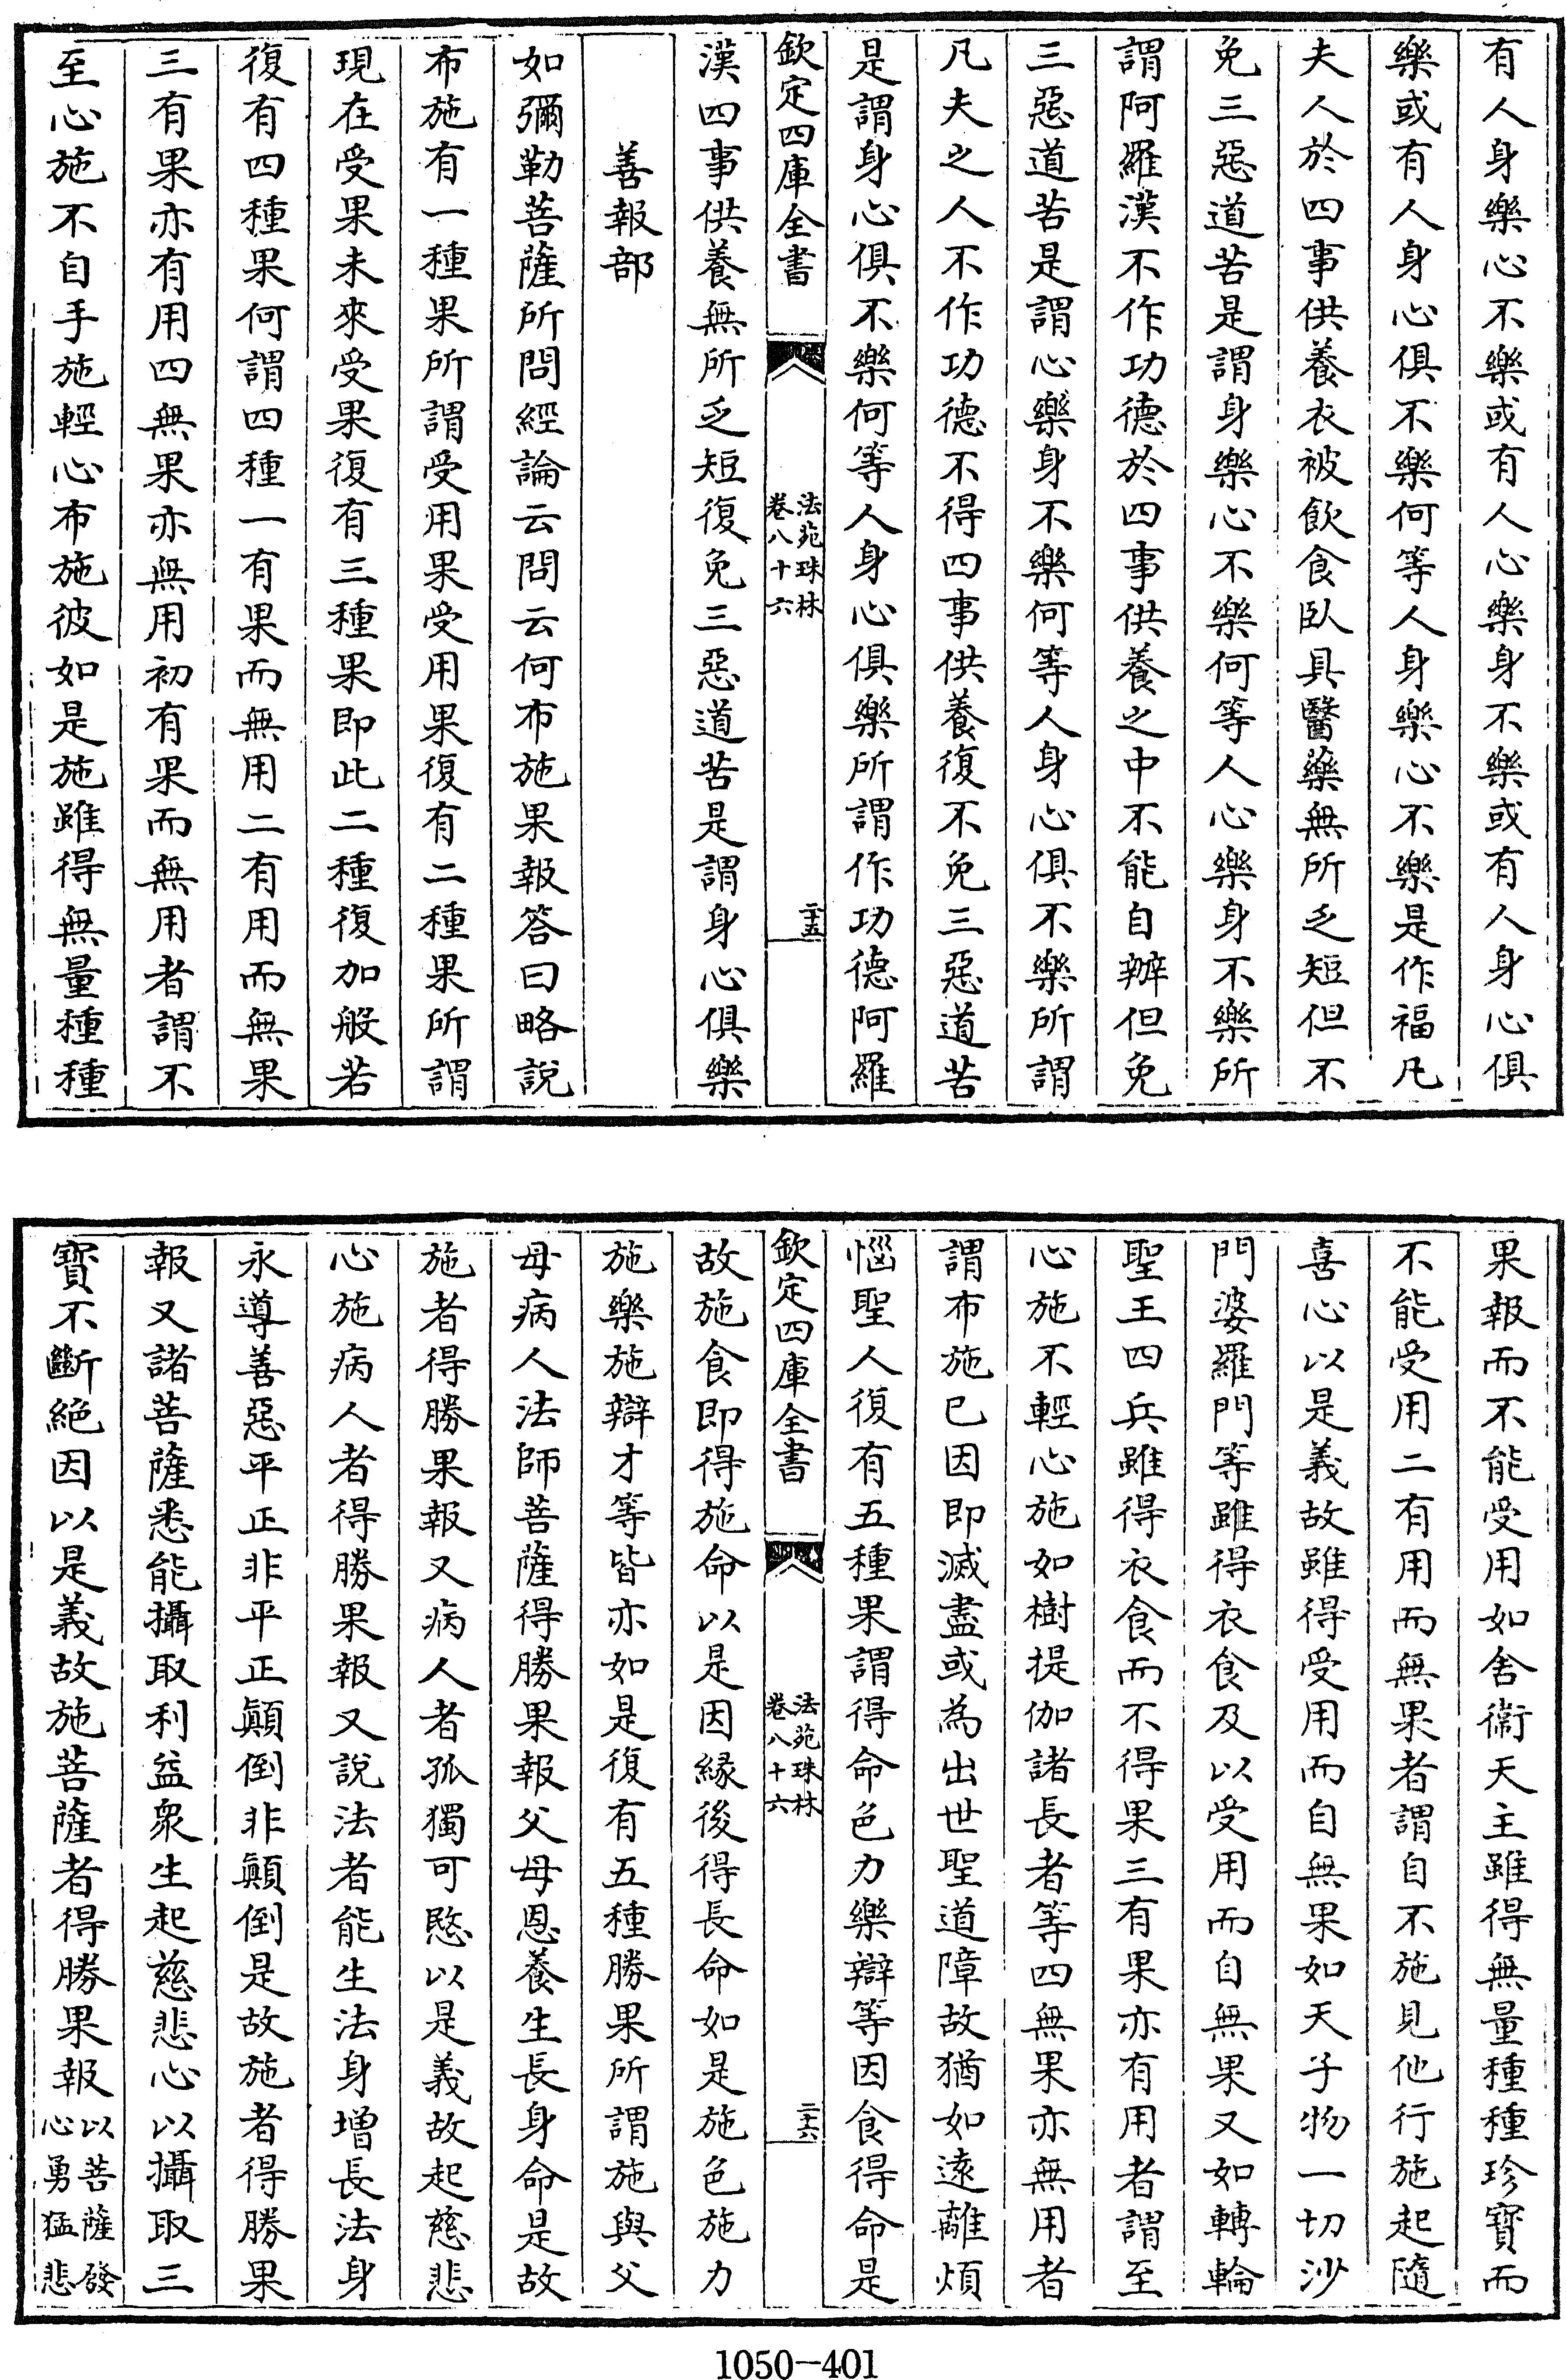 有人身樂心不樂或有人心樂身不樂或有人身心俱
樂或有人身心俱不樂何等人身樂心不樂是作福凡
夫人於四事供養衣被飲食臥具醫藥無所乏短但不
免三惡道苦是謂身樂心不樂何等人心樂身不樂所
謂阿羅漢不作功德於四事供養之中不能自辦但免
三惡道苦是謂心樂身不樂何等人身心俱不樂所謂
凡夫之人不作功德不得四事供養復不免三惡道苦
是謂身心俱不樂何等人身心俱樂所謂作功德阿羅
欽定四庫全書
法苑珠林
卷八十六
二十五
漢四事供養無所乏短復免三惡道苦是謂身心俱樂
善報部
如彌勒菩薩所問經論云問云何布施果報答曰略說
布施有一種果所謂受用果受用果復有二種果所謂
現在受果未來受果復有三種果即此二種復加般若
復有四種果何謂四種一有果而無用二有用而無果
三有果亦有用四無果亦無用初有果而無用者謂不
至心施不自手施輕心布施彼如是施雖得無量種種
果報而不能受用如舍衛天主雖得無量種種珍寶而
不能受用二有用而無果者謂自不施見他行施起隨
喜心以是義故雖得受用而自無果如天子物一切沙
門婆羅門等雖得衣食及以受用而自無果又如轉輪
聖王四兵雖得衣食而不得果三有果亦有用者謂至
心施不輕心施如樹提伽諸長者等四無果亦無用者
謂布施已因即滅盡或為出世聖道障故猶如遠離煩
惱聖人復有五種果謂得命色力樂辯等因食得命是
欽定四庫全書
法苑珠林
卷八十六
二十六
故施食即得施命以是因緣後得長命如是施色施力
施樂施辯才等皆亦如是復有五種勝果所謂施與父
母病人法師菩薩得勝果報父母恩養生長身命是故
施者得勝果報又病人者孤獨可愍以是義故起慈悲
心施病人者得勝果報又說法者能生法身增長法身
永導善惡平正非平正顛倒非顛倒是故施者得勝果
報又諸菩薩悉能攝取利益衆生起慈悲心以攝取三
寶不斷絕因以是義故施菩薩者得勝果報以菩薩發
心勇猛悲
1050-401